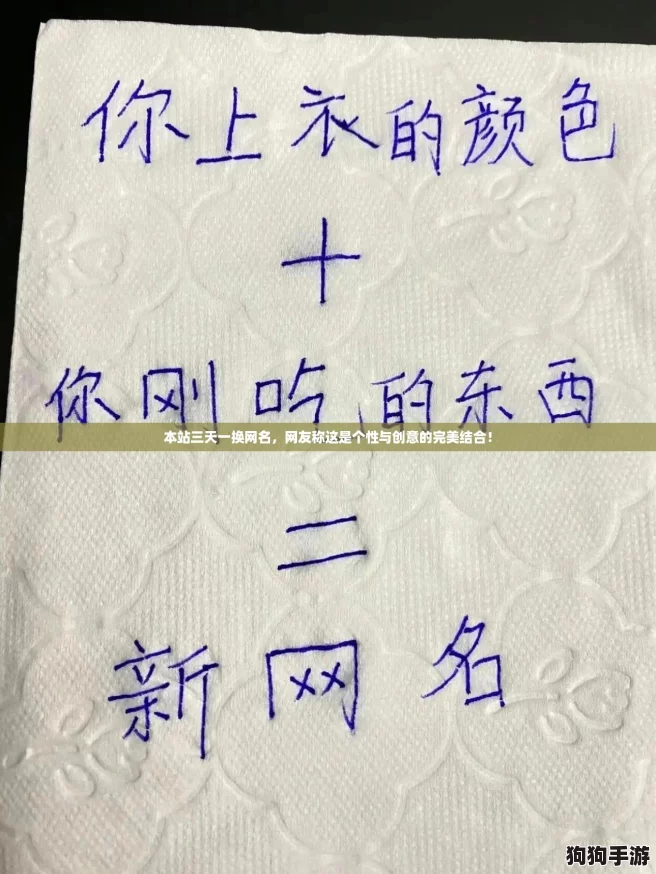 你上衣的颜色
+
你刚吃的东西
本站三天一换网名，网友称这是个性与创意的完美结合！
=
新网名
狗狗手游